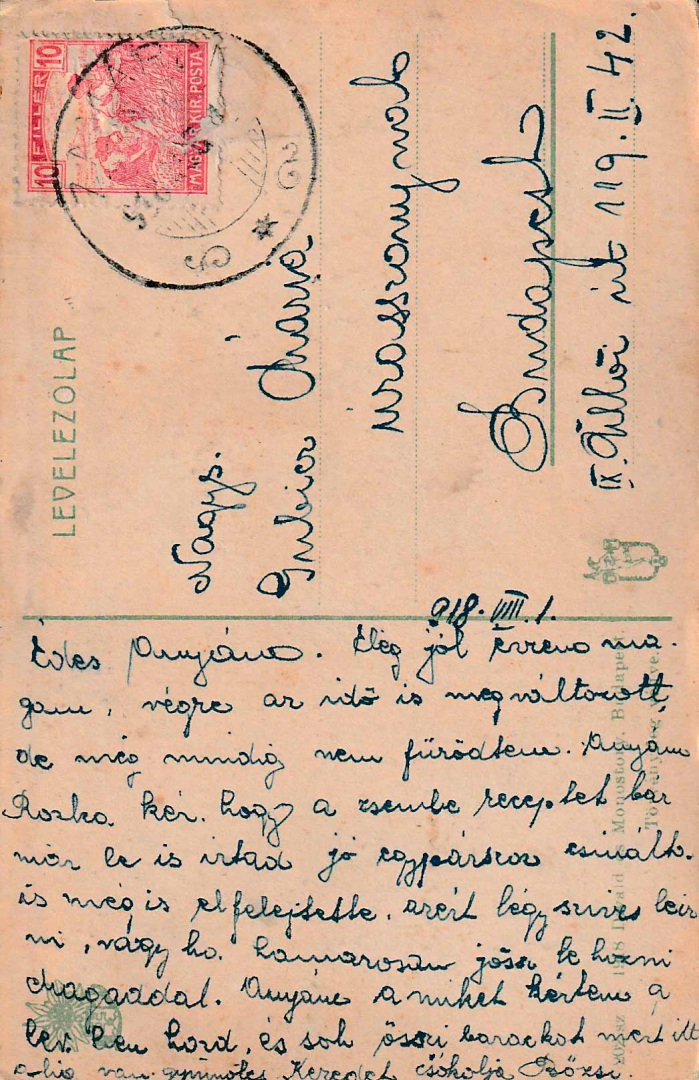 LEVELEZŐLAP
10 FILLÉR 10
MAGY. KIR. POSTA
Nagys.
Gruber Mária
úrasszonynak
Budapest
IX. Üllői út 119. II. 42.
918. VIII. 1.
Édes Anyám. Elég jól érzem ma-
gam, végre az idő is megváltozott,
de még mindig nem fürödtem. Anyám
Rozka kér. hogy a zsemle receptet bár
már le is irtad jó egypárszor csinált.
is még is elfelejtette, azért légy szíves leir
ni, vagy ha hamarosan jössz le hozni
magaddal. Anyám amiket kértem a
lev. ben hozd, és sok őszi barackot mert itt
van gyümölcs Kezedet csókolja Bözsi.
Monostory, Budapest